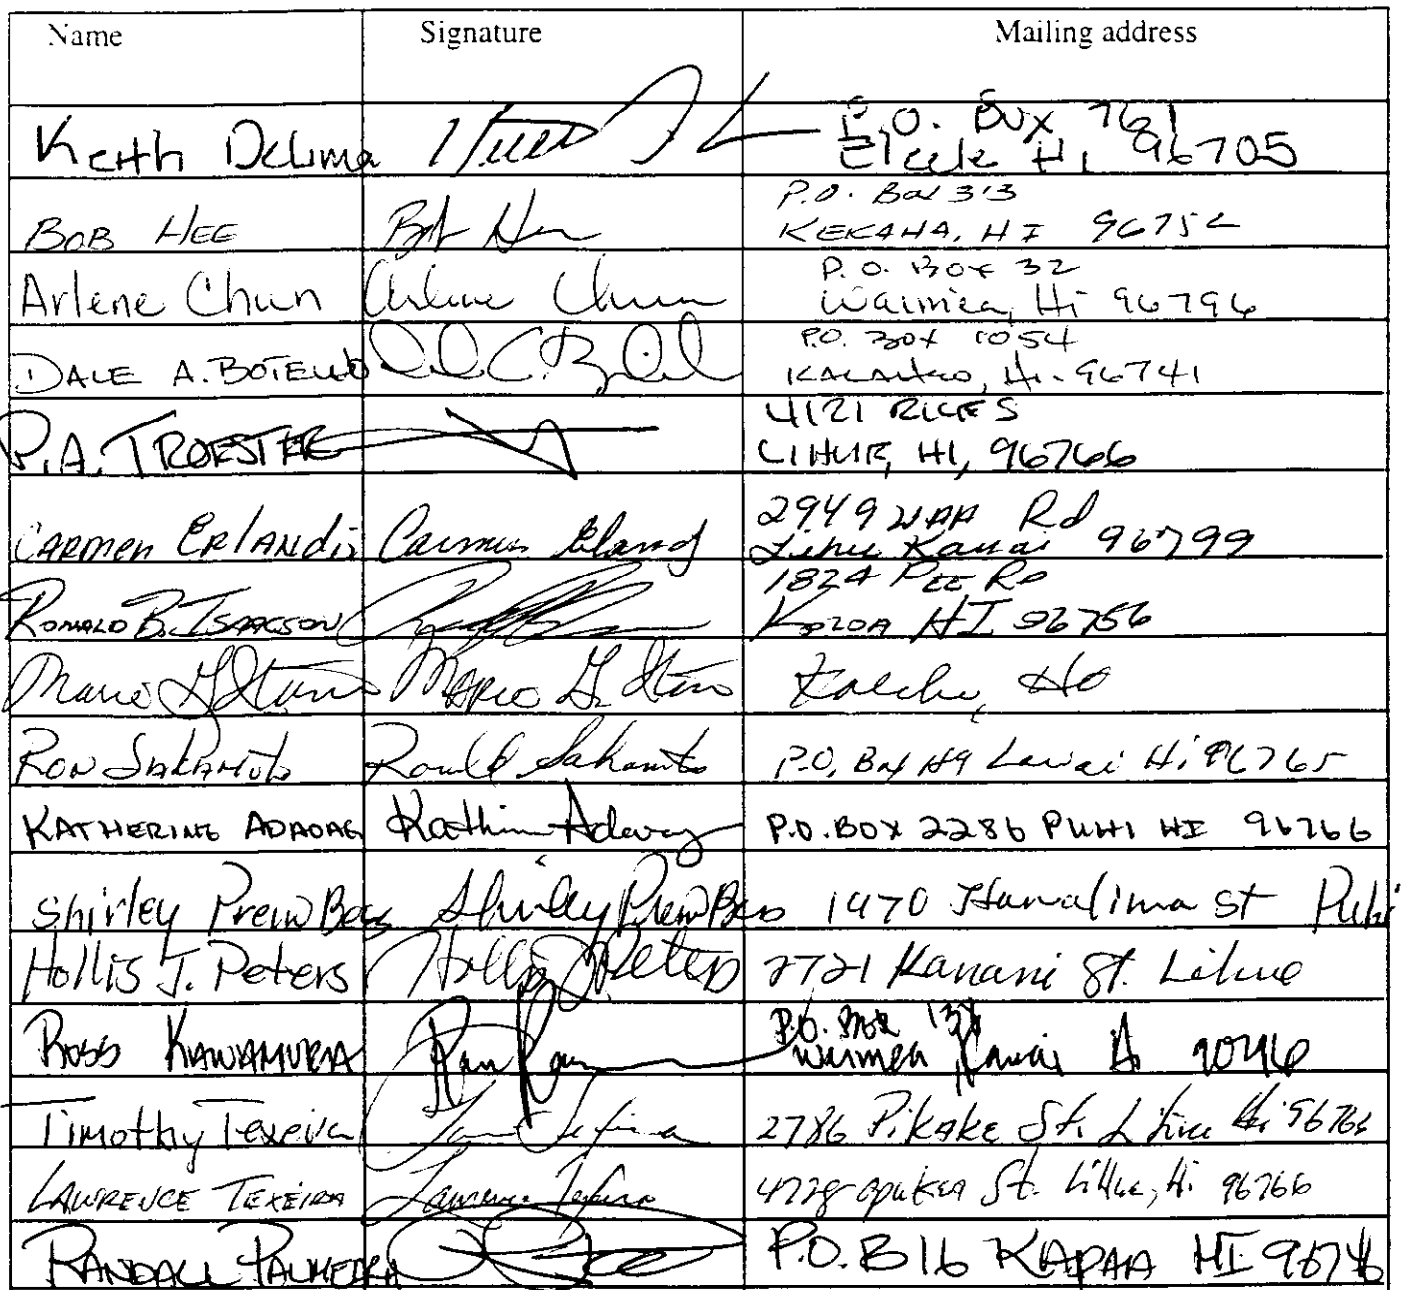 Name Signature Mailing address
Keith Delima P.O. Box 761
Eleele Hi 96705
BOB HEE Bob Hee P.O. Box 313
KEKAHA, HI 96752
Arlene Chun Arlene Chun P.O. Box 32
Waimea, Hi 96796
DALE A. BOTELHO P.O. Box 1054
KALAHEO, Hi. 96741
P.A. TROESTER 4121 RICE S
LIHUE, HI, 96766
CARMEN ERLANDis Carmen 2949 Rd
Lihue Kauai 96799
RONALD B. ISAACSON 1824 PEE RD
KOLOA HI 96756
Mario Mario
RON SAKAMOTO Ronald Sakamoto P.O. Box Lawai Hi 96765
KATHERINE ADAOAG P.O. BOX 2286 PUHI HI 96766
Shirley Shirley 1470 Hanalima St Puhi
Hollis J. Peters Hollis J Peters 2721 Kanani St. Lihue
ROSS KAWAMURA P.O. BOX
Waimea, Kauai
Timothy Texeira 2786 Pikake St. Lihue Hi 96766
LAWRENCE TEXEIRA Lawrence Texeira St. Lihue, Hi 96766
RANDALL P.O. B 16 KAPAA HI